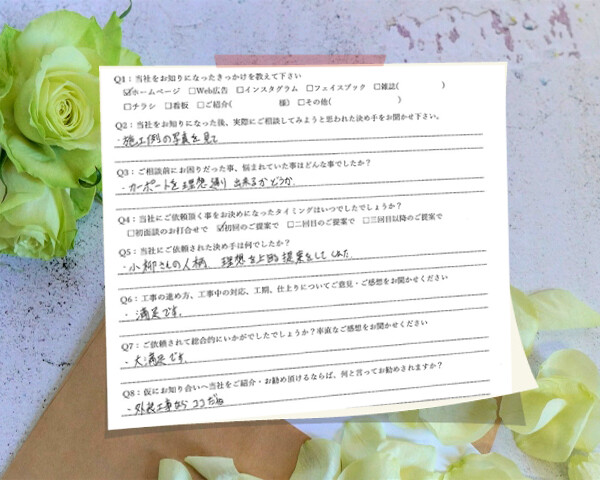 Q1：当社をお知りになったきっかけを教えて下さい
☑ホームページ □Web広告 □インスタグラム □フェイスブック □雑誌( )
□チラシ □看板 □ご紹介( 様) □その他( )
Q2：当社をお知りになった後、実際にご相談してみようと思われた決め手をお聞かせ下さい。
・施工例の写真を見て
Q3：ご相談前にお困りだった事、悩まれていた事はどんな事でしたか？
・カーポートを理想通り出来るかどうか.
Q4：当社にご依頼頂く事をお決めになったタイミングはいつでしたでしょうか？
□初面談のお打合せで ☑初回のご提案で □二回目のご提案で □三回目以降のご提案で
Q5：当社にご依頼された決め手は何でしたか？
・小柳さんの人柄, 理想を上回る提案をしてくれた.
Q6：工事の進め方、工事中の対応、工期、仕上りについてご意見・ご感想をお聞かせください
・満足です.
Q7：ご依頼されて総合的にいかがでしたでしょうか？率直なご感想をお聞かせください
・大満足です.
Q8：仮にお知り合いへ当社をご紹介・お勧め頂けるならば、何と言ってお勧めされますか？
・外装工事なら ココだね